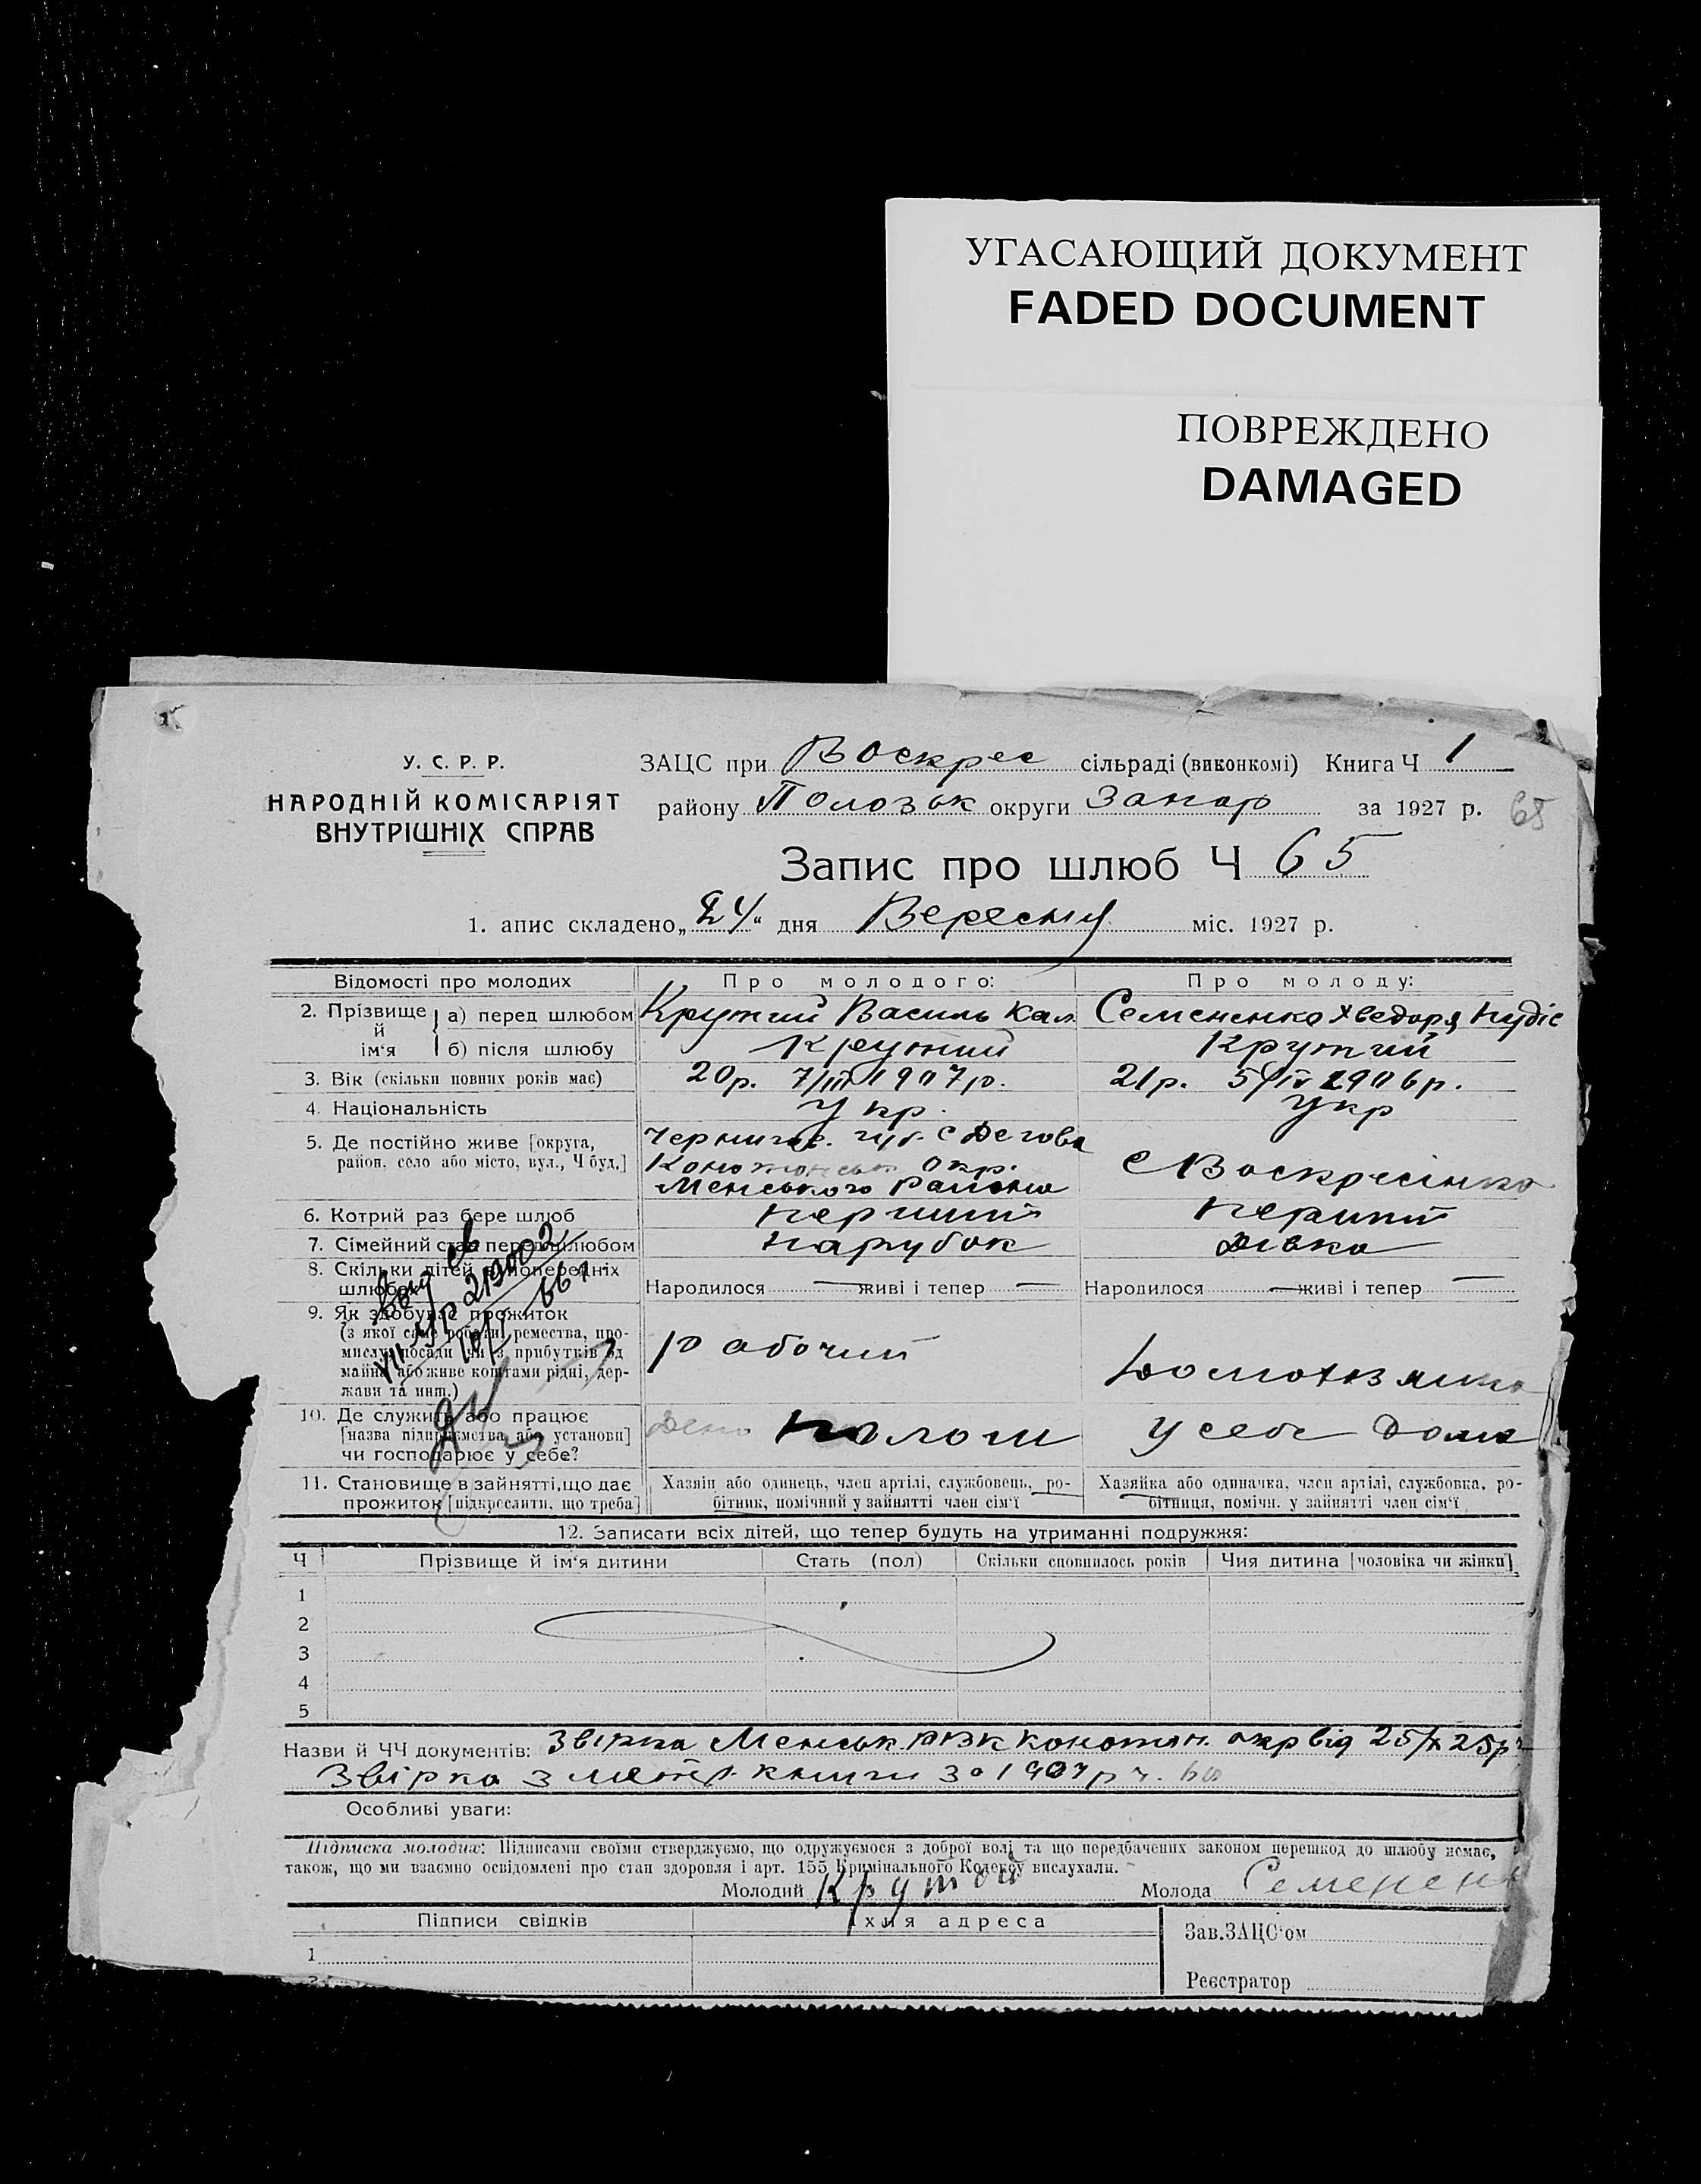 УГАСАЮЩИЙ ДОКУМЕНТ
FADED DOCUMENT
ПОВРЕЖДЕНО
DAMAGED
У. С. Р. Р.
НАРОДНІЙ КОМІСАРІЯТ
ВНУТРІШНІХ СПРАВ
ЗАЦС при Воскрес сільраді (виконкомі) Книга Ч 1
району Полозьк округи Запор за 1927 р. 65
Запис про шлюб Ч 65
1. апис складено „24“ дня Вересня міс. 1927 р.
Відомості про молодих Про молодого: Про молоду:
2. Прізвище й ім‘я а) перед шлюбом Крутий Василь Кал Семененко Хведоря
б) після шлюбу Крутий Крутий
3. Вік (скільки повних років має) 20р. 7/III 1907р. 21р. 5/IV 1906р.
4. Національність Укр. Укр
5. Де постійно живе [округа, район, село або місто, вул., Ч буд.] Черниг. губ. с Дегова
Конотопськ окр.
Менського Района
с Воскресінка
6. Котрий раз бере шлюб перший перший
7. Сімейний стан перед шлюбом парубок дівка
8. Скільки дітей в попередніх шлюбах Народилося — живі і тепер — Народилося — живі і тепер —
9. Як здобуває прожиток
(з якої саме роботи, ремества, промислу, посади чи з прибутків од майна або живе коштами рідні, держави та инш.)
рабочий
10. Де служить або працює
[назва підприємства або установи]
чи господарює у себе?
Депо Пологи у себе дома
11. Становище в зайнятті, що дає прожиток [підкреслити, що треба]
Хазяїн або одинець, член артілі, службовець, робітник, помічний у зайнятті член сім‘ї
Хазяйка або одиначка, член артілі, службовка, робітниця, помічн. у зайнятті член сім‘ї
12. Записати всіх дітей, що тепер будуть на утриманні подружжя:
Ч Прізвище й ім‘я дитини Стать (пол) Скільки сповнилось років Чия дитина [чоловіка чи жінки]
1
2
3
4
5
Назви й ЧЧ документів: Звірка Менськ. РВК Конотоп. окр від 25/X 25р
Звірка з метр. книги за 1907р ч.
Особливі уваги:
Підписка молодих: Підписами своїми стверджуємо, що одружуємося з доброї волі та що передбачених законом перешкод до шлюбу немає,
також, що ми взаємно освідомлені про стан здоровля і арт. 155 Кримінального Кодексу вислухали.
Молодий Крутой Молода Семенен
Підписи свідків Їхня адреса
Зав. ЗАЦС‘ом
1
Реєстратор
2